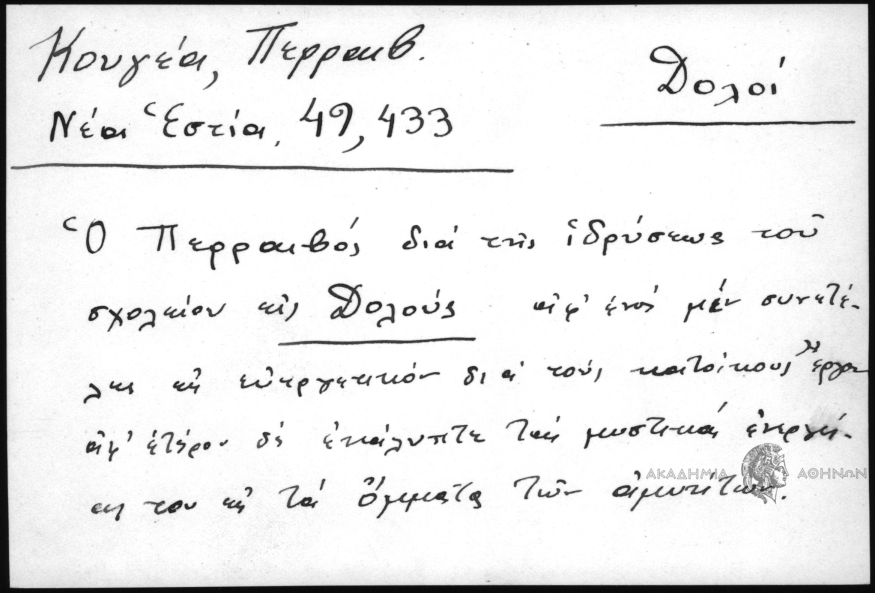 Κουγέα, Περραιβ.
Δολοί
Νέα Ἑστία, 49, 433
Ὁ Περραιβός διά τῆς ἱδρύσεως τοῦ
σχολείου εἰς Δολούς ἀφ' ἑνός μέν συνετέ-
λει εἰς εὐεργετικόν διά τούς κατοίκους ἔργον
ἀφ' ἑτέρου δέ ἐκάλυπτε τάς μυστικάς ἐνεργεί-
ας του εἰς τά ὄμματα τῶν ἀμυήτων.
ΑΚΑΔΗΜΙΑ ΑΘΗΝΩΝ